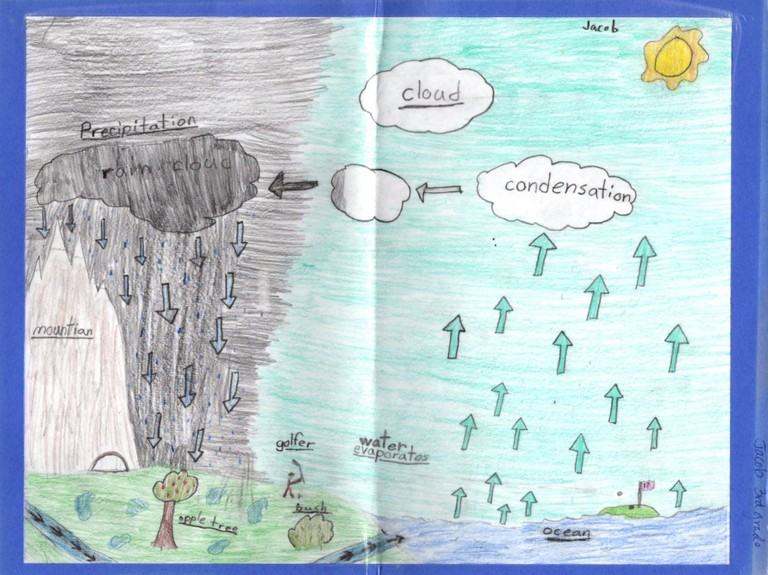 Jacob
cloud
Precipitation
rain cloud
condensation
mountian
golfer
water
evaporates
bush
apple tree
ocean
Jacob 3rd Grade